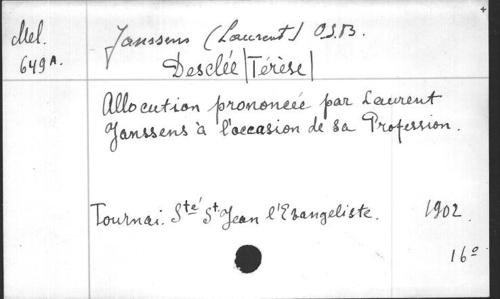 Mel.
649A.
Janssens (Laurent) O.S.B.
Desclée |Térèse|
Allocution prononcée par Laurent
Janssens à l'occasion de sa Profession.
Tournai. Sté St. Jean l'Evangeliste. 1902.
16º